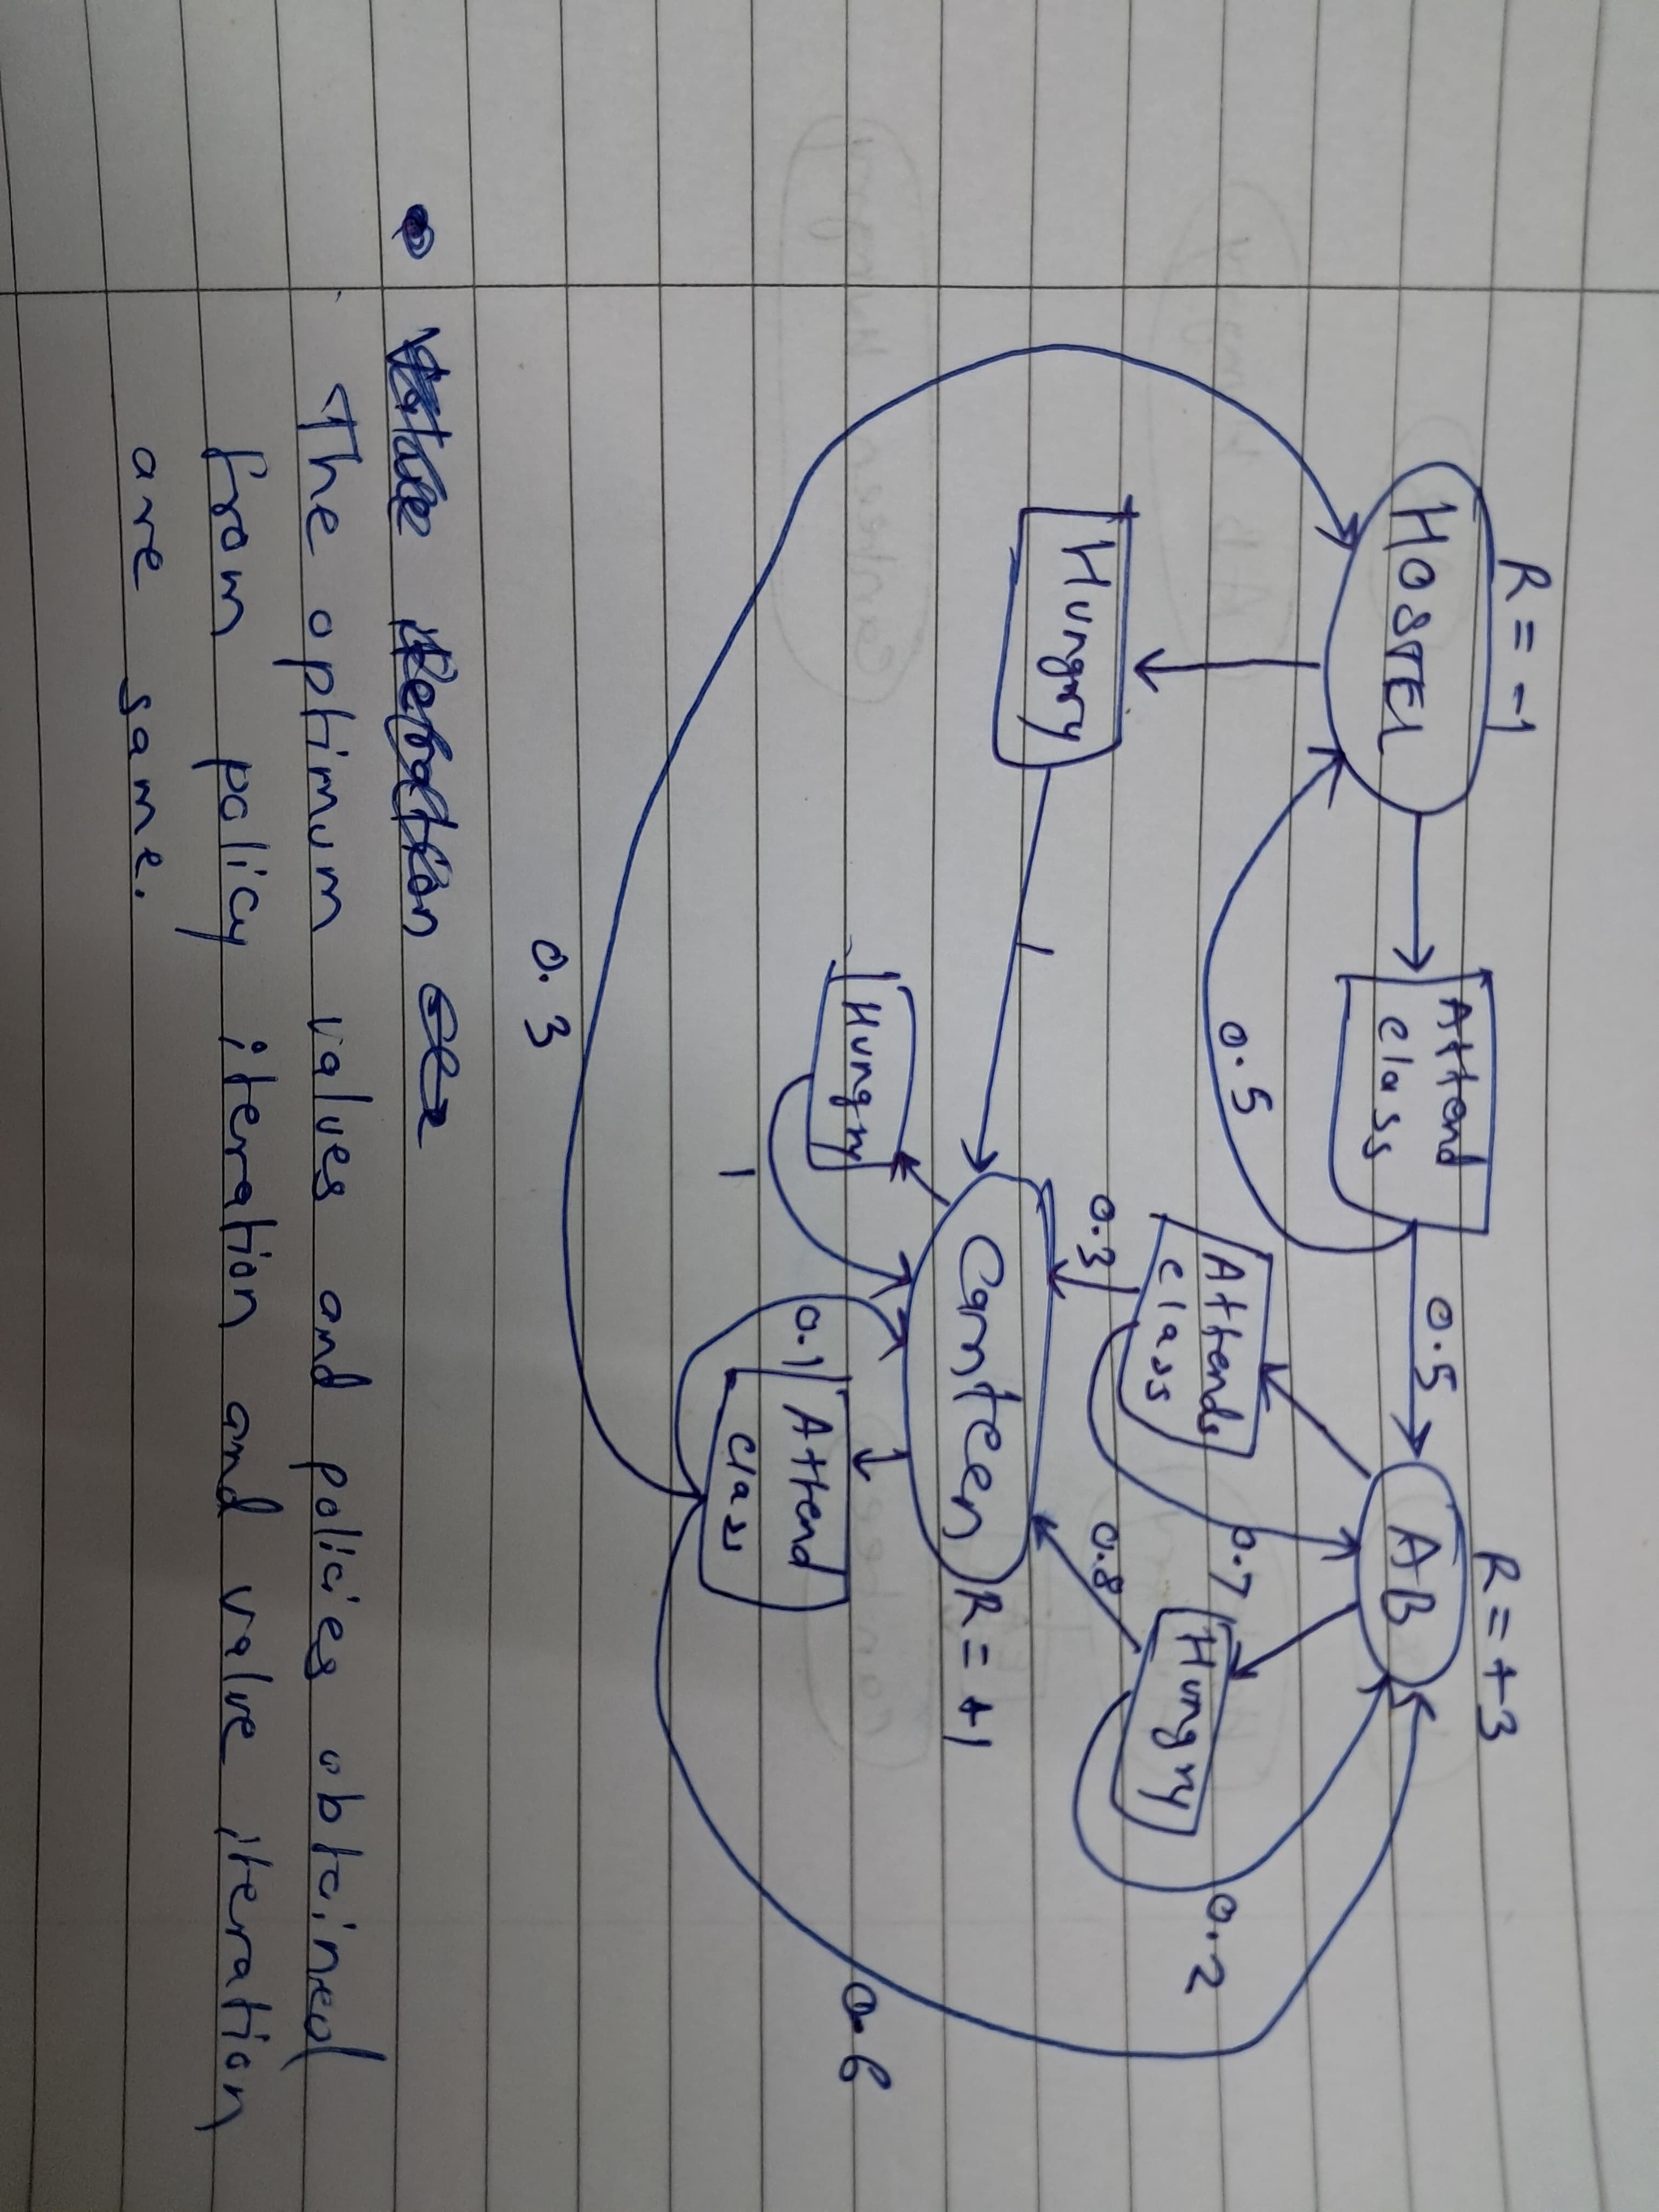 R = -1
R = +3
HOSTEL
Attend
class
0.5
AB
0.5
Attends
class
0.7
Hungry
0.2
0.3
0.8
Hungry
1
Canteen
R = +1
Hungry
0.1
Attend
class
0.6
1
0.3
The optimum values and policies obtained
from policy iteration and value iteration
are same.